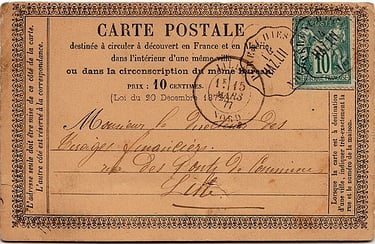 CARTE POSTALE
destinée à circuler à découvert en France et en Algérie
dans l'intérieur d'une même ville
ou dans la circonscription du même bureau
PRIX : 10 CENTIMES.
(Loi du 20 Décembre 187
MARS
77
NORD
10
Monsieur le Directeur des
financières
rue des Ponts de Comines
Lille
L'adresse seule doit être mise de ce côté de la carte.
L'autre côté est réservé à la correspondance.
Lorsque la carte est à destination
d'une ville, indiquer très-exactement la
rue et le numéro de la maison.